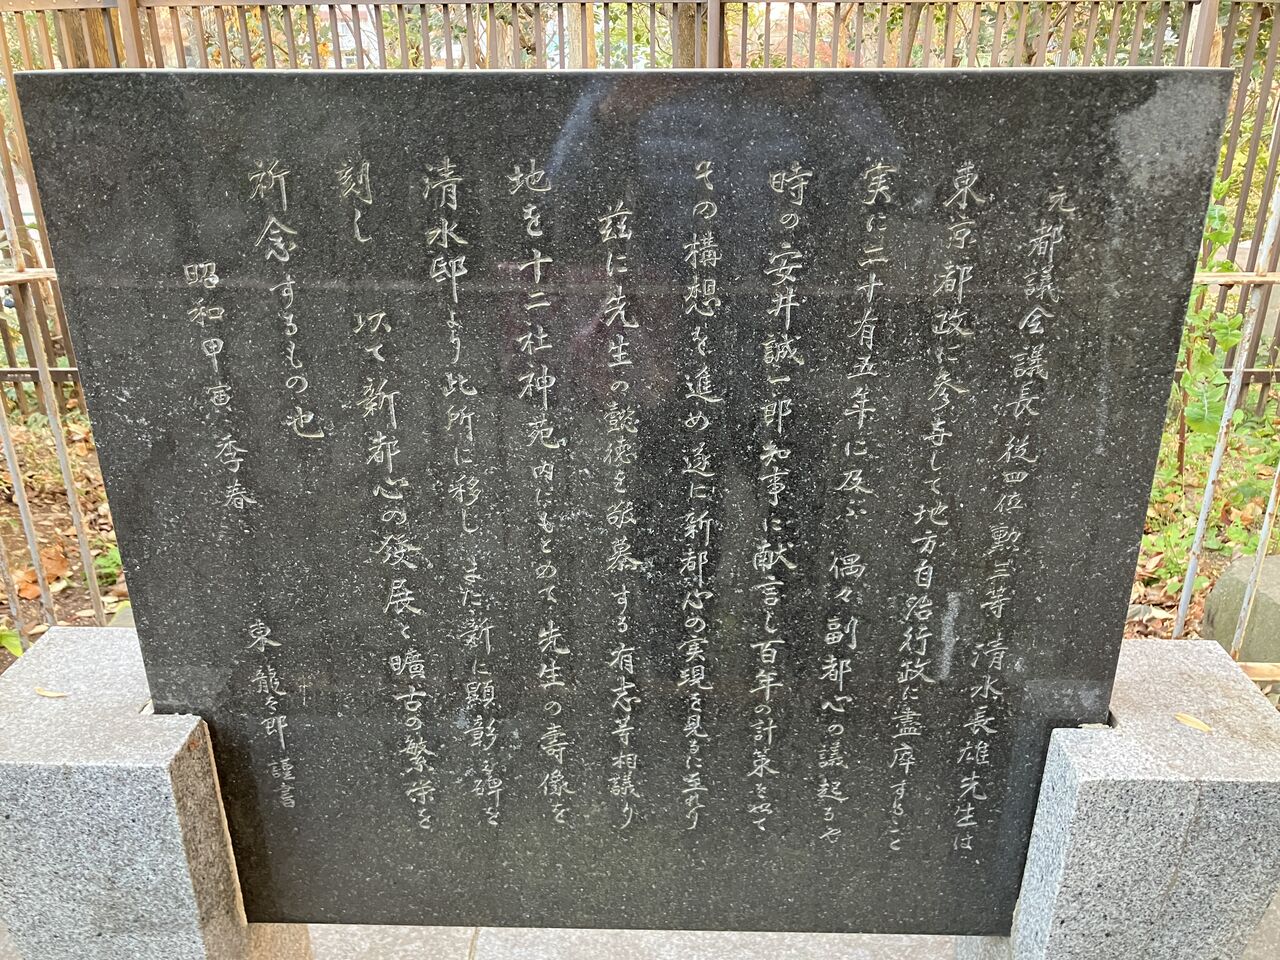 元都議会議長 従四位勲三等 清水長雄先生は、
東京都政に参与して地方自治行政に盡瘁すること
実に二十有五年に及ぶ 偶々副都心の議起るや
時の安井誠一郎知事に献言し百年の計策を以て
その構想を進め遂に新都心の実現を見るに至れり
茲に先生の懿徳を敬慕する有志等相議り
地を十二社神苑内にもとめて先生の壽像を
清水邸より此所に移し また新に顕彰碑を
刻し 以て新都心の発展と曠古の繁栄を
祈念するもの也
昭和甲寅 季春
東 龍太郎 謹書